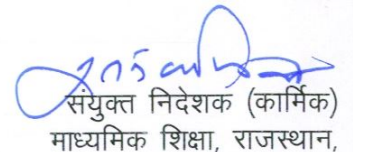 संयुक्त निदेशक (कार्मिक)
माध्यमिक शिक्षा, राजस्थान,